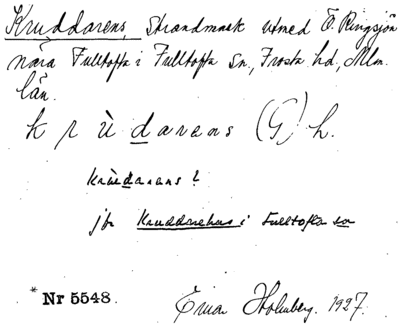 Kruddarens, Strandmark utmed Ö. Ringsjön
nära Fulltofta i Fulltofta sn, Frosta hd, Mlm.
län.
k r ù d a r e n s (G) h.
krùdarens?
jfr Kruddarehus i Fulltofta sn
* Nr 5548.
Einar Holmberg. 1927.